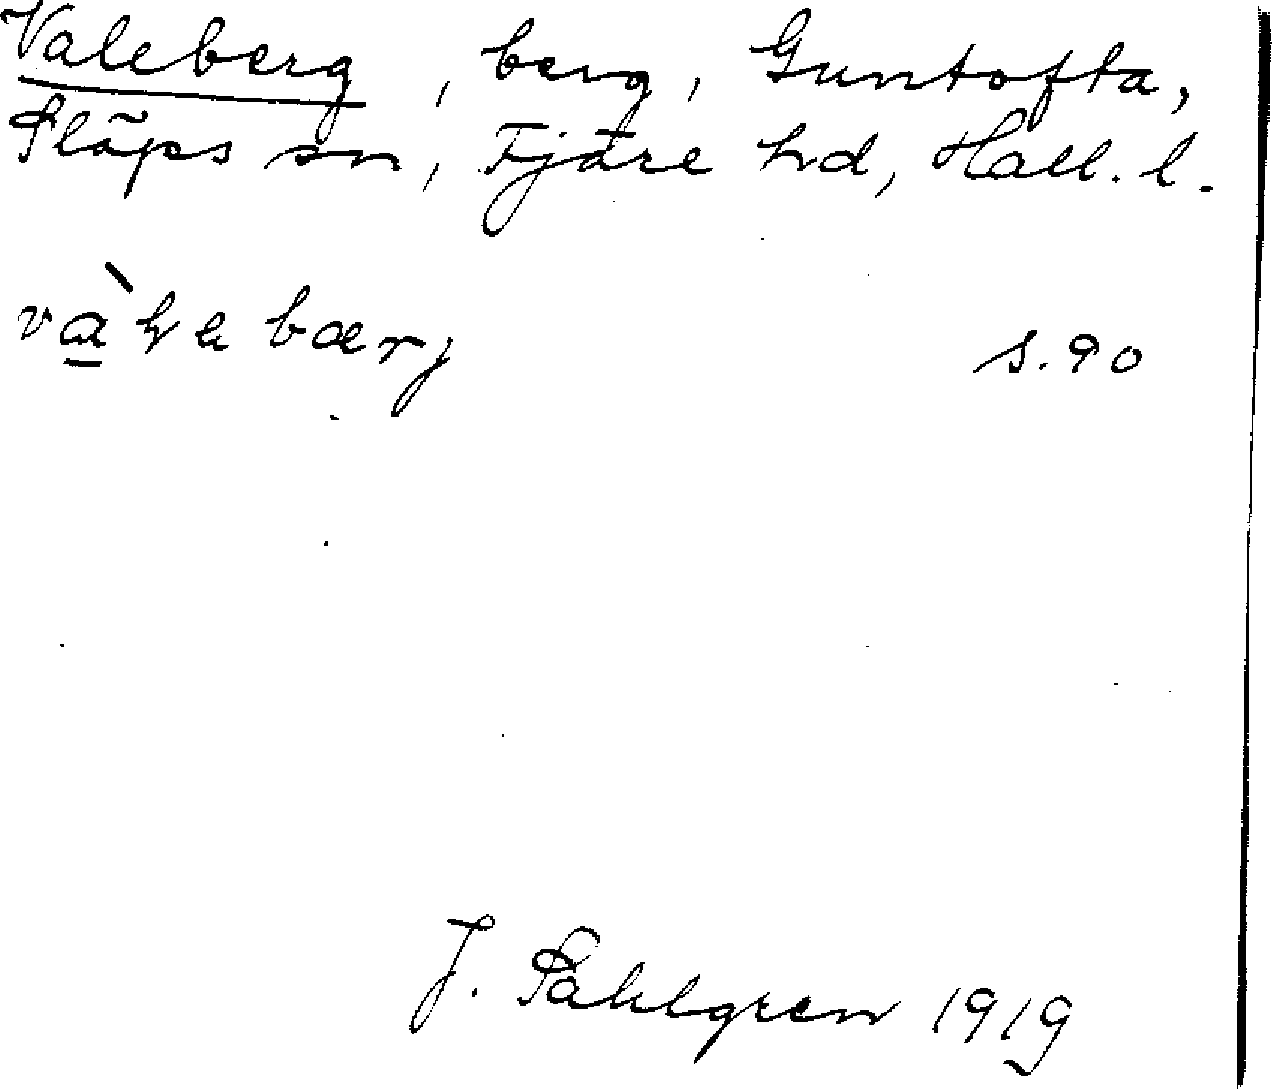 Valeberg, berg, Guntofta,
Släps sn, Fjäre hd, Hall. l.
và̱ɫebærj s. 90
J. Sahlgren 1919